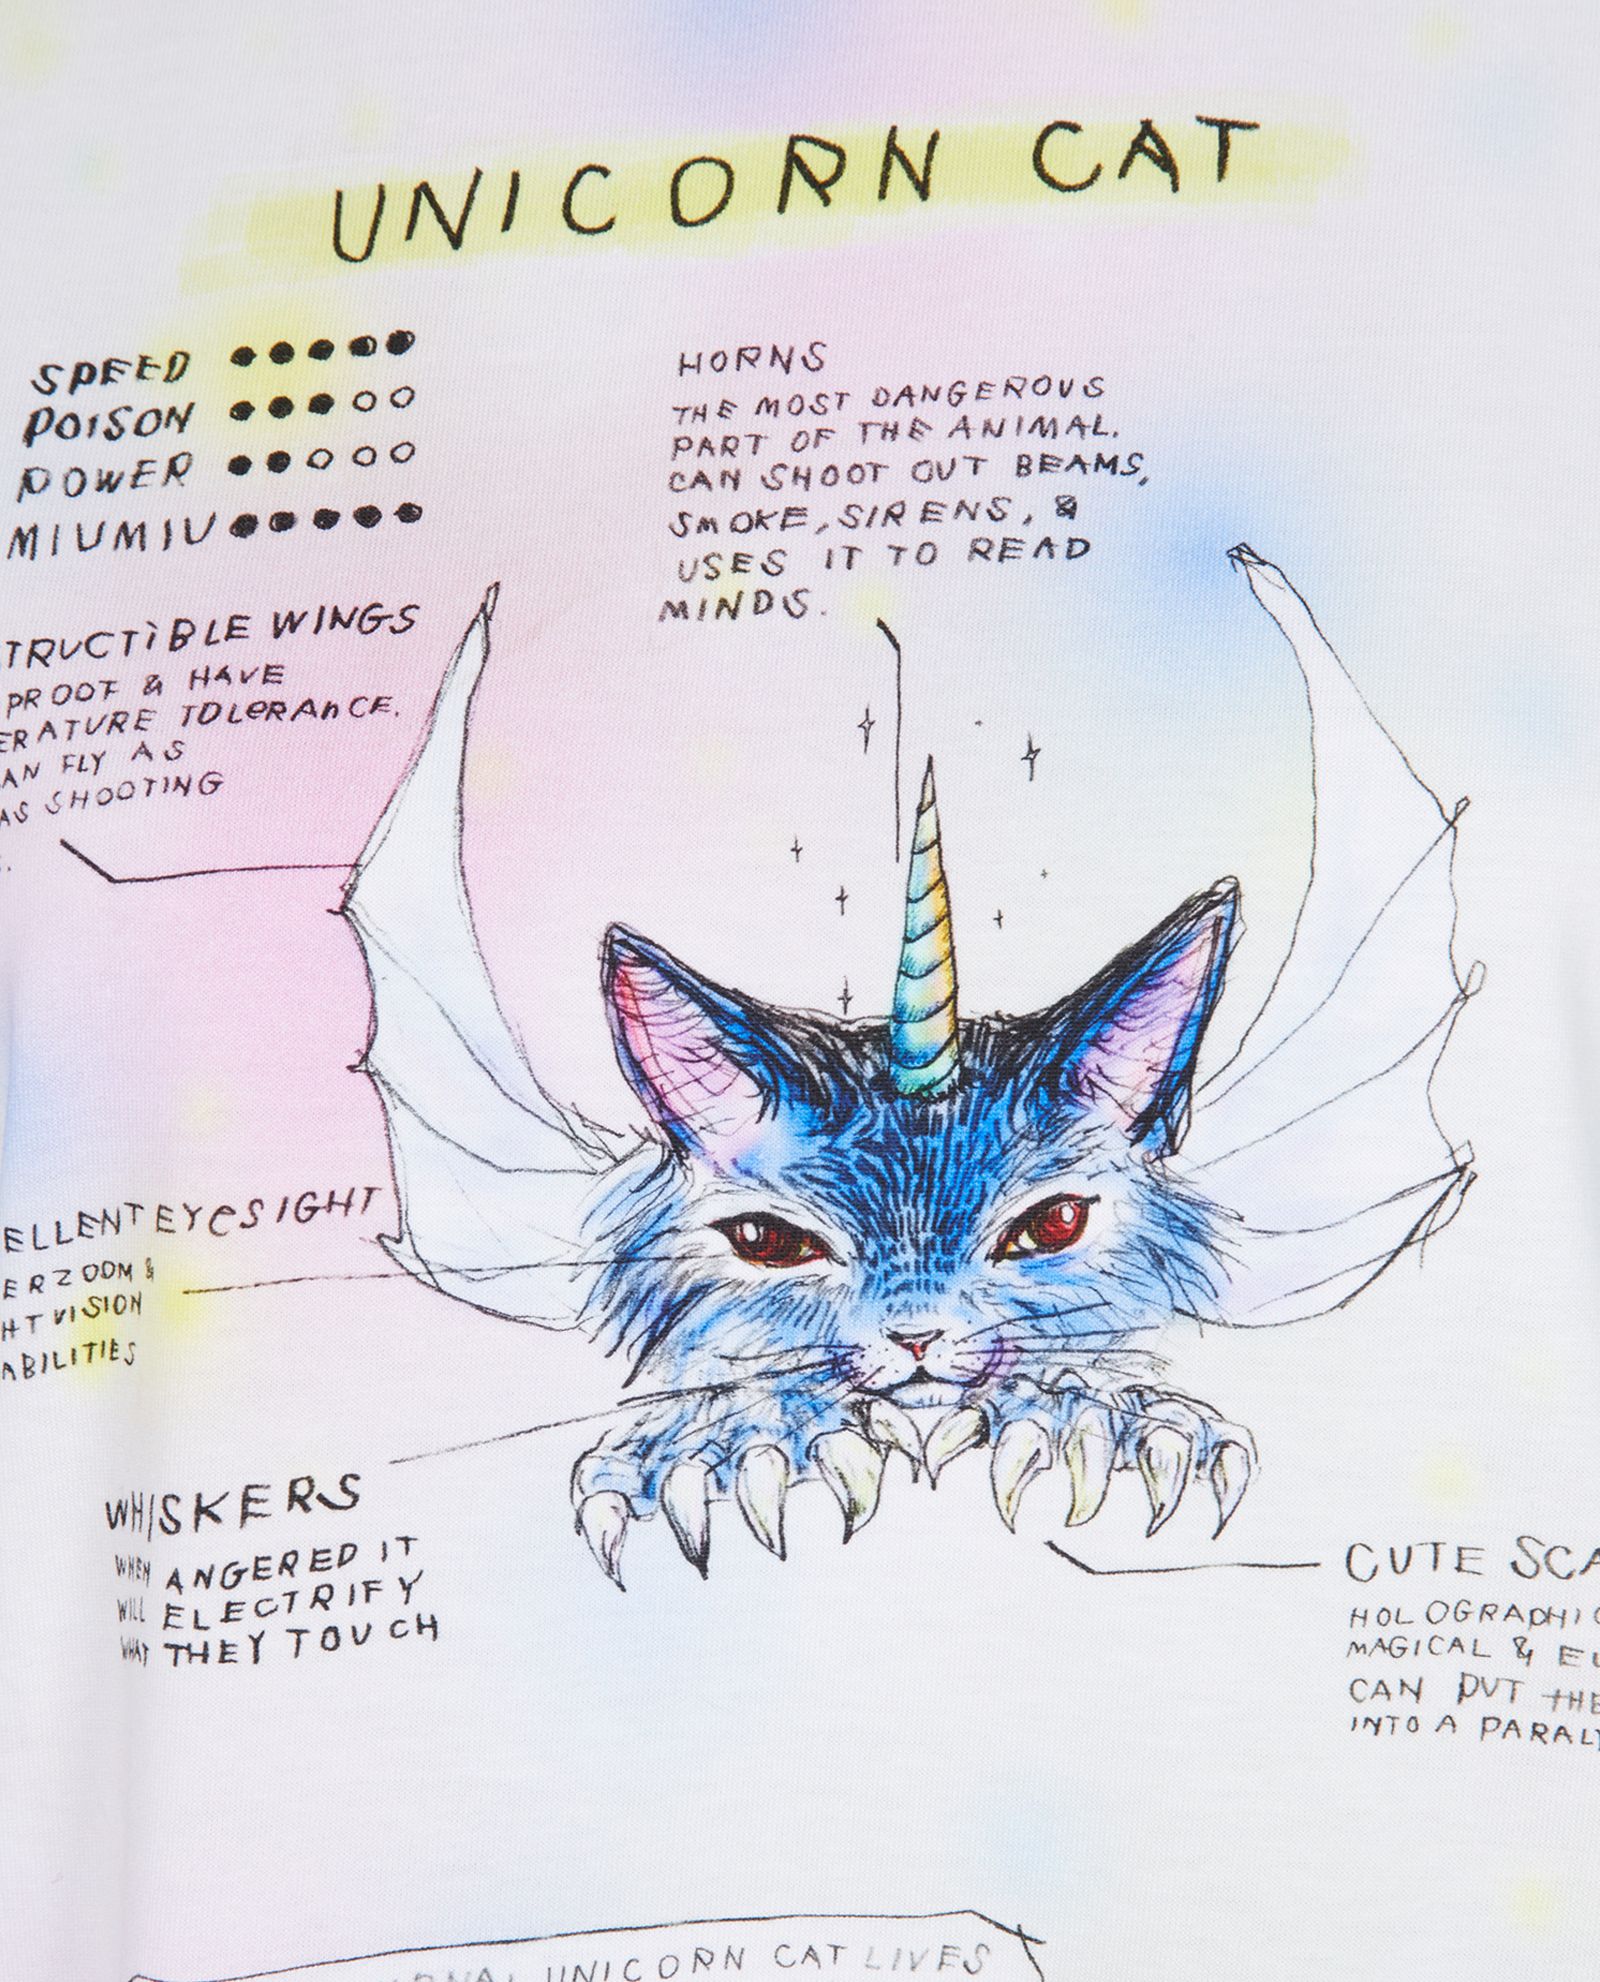 UNICORN CAT
SPEED
POISON
POWER
MIUMIU
HORNS
THE MOST DANGEROUS
PART OF THE ANIMAL.
CAN SHOOT OUT BEAMS,
SMOKE, SIRENS, &
USES IT TO READ
MINDS.
TRUCTIBLE WINGS
PROOF & HAVE
ERATURE TOLERANCE.
AN FLY AS
AS SHOOTING
ELLENT EYESIGHT
ERZOOM &
HTVISION
ABILITIES
WHISKERS
WHEN ANGERED IT
WILL ELECTRIFY
WHAT THEY TOUCH
CUTE SCA
HOLOGRAPHIC
MAGICAL & EL
CAN PUT THE
INTO A PARALY
UNICORN CAT LIVES